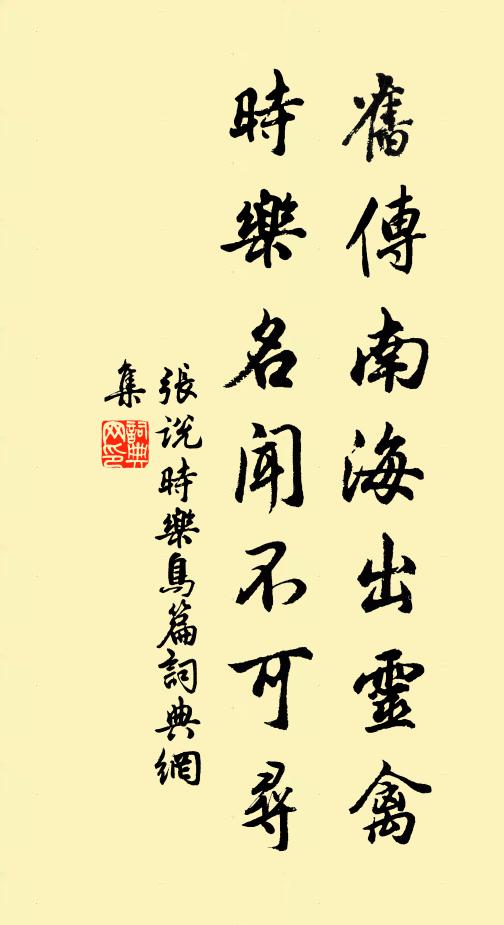 舊傳南海出靈禽
時樂名聞不可尋
張說時樂鳥篇詞典網
集
詞典
网印